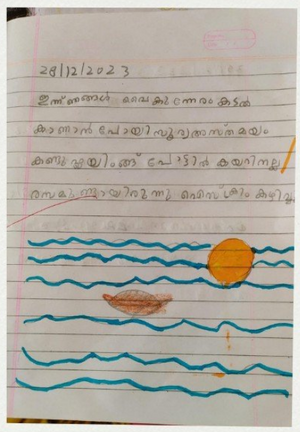 28/12/2023
ഇന്ന് ഞങ്ങൾ വൈകുന്നേരം കടൽ
കാണാൻ പോയി സൂര്യഅസ്തമയം
കണ്ടു പോട്ടിൽ കയറി നല്ല
രസമുണ്ടായിരുന്നു ഐസ്ക്രീം കഴിച്ചു